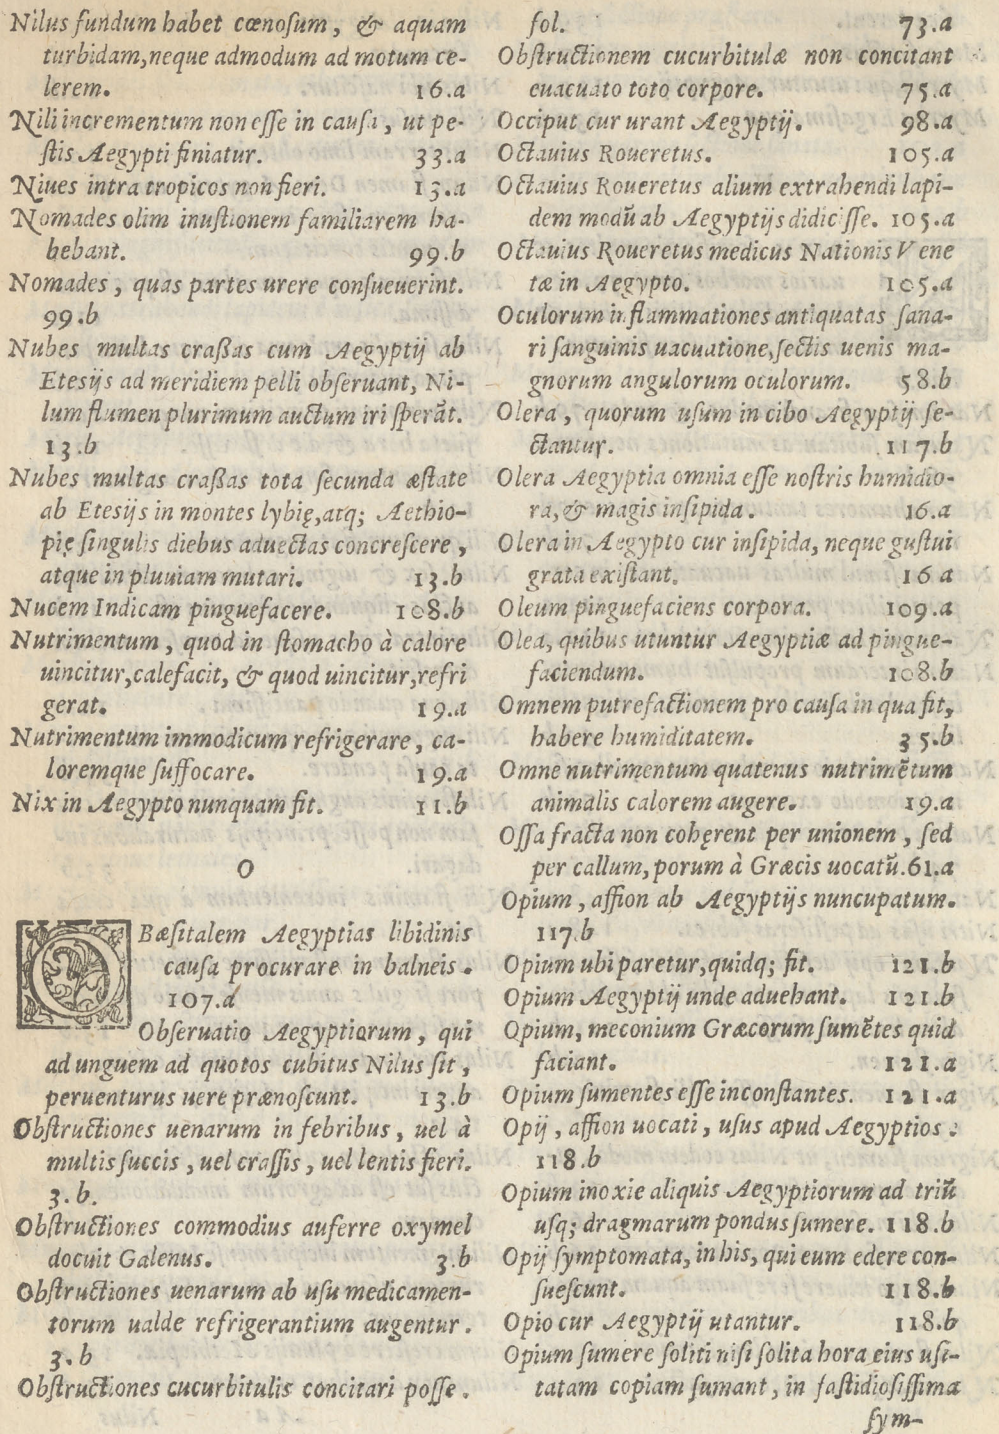 Nilus fundum habet cœnosum, & aquam
turbidam, neque admodum ad motum ce-
lerem. 16.a
Nili incrementum non esse in causa, ut pe-
stis Aegypti finiatur. 33.a
Niues intra tropicos non fieri. 13.a
Nomades olim inustionem familiarem ha-
bebant. 99.b
Nomades, quas partes urere consueuerint.
99.b
Nubes multas craßas cum Aegyptij ab
Etesijs ad meridiem pelli obseruant, Ni-
lum flumen plurimum auctum iri sperāt.
13.b
Nubes multas craßas tota secunda æstate
ab Etesijs in montes lybię, atq; Aethio-
pię singulis diebus aduectas concrescere,
atque in pluuiam mutari. 13.b
Nucem Indicam pinguefacere. 108.b
Nutrimentum, quod in stomacho à calore
uincitur, calefacit, & quod uincitur, refri
gerat. 19.a
Nutrimentum immodicum refrigerare, ca-
loremque suffocare. 19.a
Nix in Aegypto nunquam fit. 11.b
O
OBæsitalem Aegyptias libidinis
causa procurare in balneis.
107.a
Obseruatio Aegyptiorum, qui
ad unguem ad quotos cubitus Nilus sit,
peruenturus uere prænoscunt. 13.b
Obstructiones uenarum in febribus, uel à
multis succis, uel crassis, uel lentis fieri.
3.b.
Obstructiones commodius auferre oxymel
docuit Galenus. 3.b
Obstructiones uenarum ab usu medicamen-
torum ualde refrigerantium augentur.
3.b
Obstructiones cucurbitulis concitari posse.
fol. 73.a
Obstructionem cucurbitulæ non concitant
euacuato toto corpore. 75.a
Occiput cur urant Aegyptij. 98.a
Octauius Roueretus. 105.a
Octauius Roueretus alium extrahendi lapi-
dem modū ab Aegyptijs didicisse. 105.a
Octauius Roueretus medicus Nationis Vene
tæ in Aegypto. 105.a
Oculorum inflammationes antiquatas sana-
ri sanguinis uacuatione, sectis uenis ma-
gnorum angulorum oculorum. 58.b
Olera, quorum usum in cibo Aegyptij se-
ctantur. 117.b
Olera Aegyptia omnia esse nostris humidio-
ra, & magis insipida. 16.a
Olera in Aegypto cur insipida, neque gustui
grata existant. 16 a
Oleum pinguefaciens corpora. 109.a
Olea, quibus utuntur Aegyptiæ ad pingue-
faciendum. 108.b
Omnem putrefactionem pro causa in qua fit,
habere humiditatem. 35.b
Omne nutrimentum quatenus nutrimētum
animalis calorem augere. 19.a
Ossa fracta non cohęrent per unionem, sed
per callum, porum à Græcis uocatū. 61.a
Opium, affion ab Aegyptijs nuncupatum.
117.b
Opium ubi paretur, quidq; fit. 121.b
Opium Aegyptij unde aduehant. 121.b
Opium, meconium Græcorum sumētes quid
faciant. 121.a
Opium sumentes esse inconstantes. 121.a
Opij, affion uocati, usus apud Aegyptios:
118.b
Opium inoxie aliquis Aegyptiorum ad triū
usq; dragmarum pondus sumere. 118.b
Opij symptomata, in his, qui eum edere con-
suescunt. 118.b
Opio cur Aegyptij utantur. 118.b
Opium sumere soliti nisi solita hora eius usi-
tatam copiam sumant, in fastidiosissima
sym-